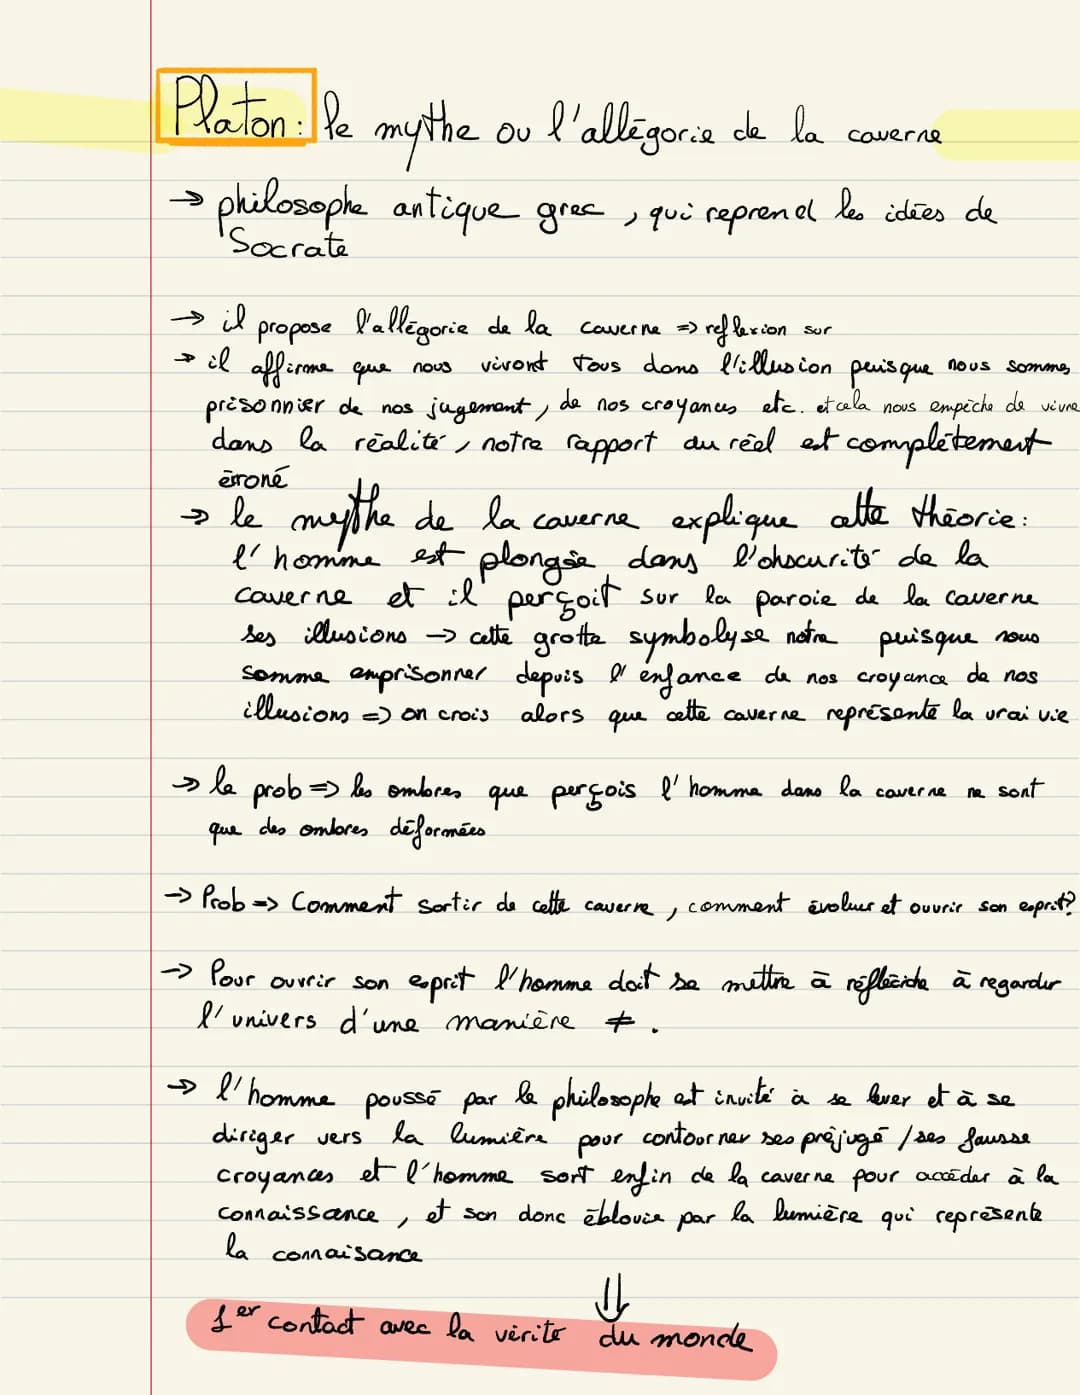 Platon : le mythe ou l'allégorie de la caverne
→ philosophe antique grec, qui reprend les idées de
Socrate
→ il propose l'allégorie de la caverne => reflexion sur
→ il affirme que nous vivont tous dans l'illusion puisque nous sommes
prisonnier de nos jugement, de nos croyances etc. et cela nous empêche de vivre
dans la réalité, notre rapport au réel est complètement
éroné
→ le mythe de la caverne explique cette théorie :
l'homme est plongée dans l'obscurité de la
caverne et il perçoit sur la paroie de la caverne
ses illusions → cette grotte symbolyse notre puisque nous
somme emprisonner depuis l'enfance de nos croyance de nos
illusions => on crois alors que cette caverne représente la vrai vie
→ le prob => les ombres que perçois l'homme dans la caverne ne sont
que des ombres déformées
→ Prob => Comment sortir de cette caverne, comment évoluer et ouvrir son esprit?
→ Pour ouvrir son esprit l'homme doit se mettre à réfléchir à regarder
l'univers d'une manière ≠.
→ l'homme poussé par le philosophe est invité à se lever et à se
diriger vers la lumière pour contourner ses préjugé / ses fausse
croyances et l'homme sort enfin de la caverne pour accéder à la
connaissance, et son donc éblouie par la lumière qui représente
la connaisance
⇓
1er contact avec la vérité du monde